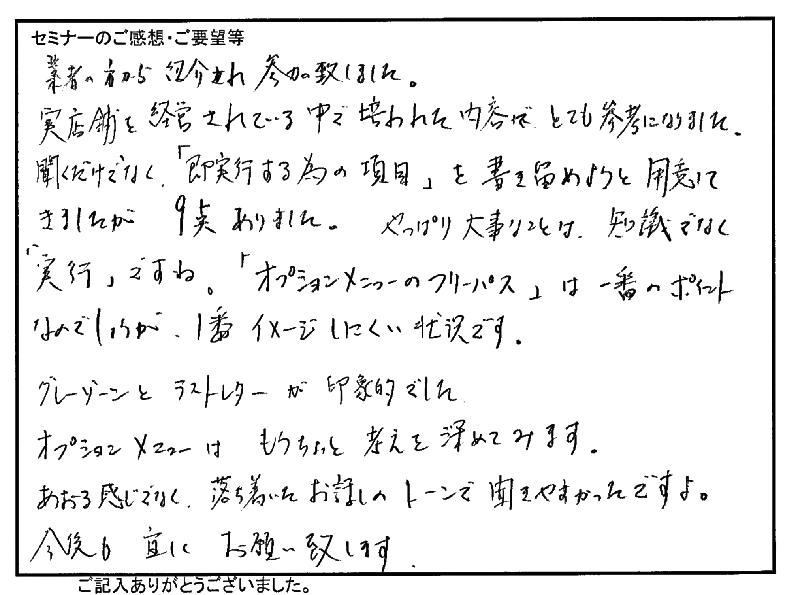 セミナーのご感想・ご要望等
業者の方から紹介され参加致しました。
実店舗を経営されている中で培われた内容で、とても参考になりました。
聞くだけでなく、「即実行する為の項目」を書き留めようと用意して
きましたが 9点ありました。 やっぱり大事なことは、知識でなく
「実行」ですね。「オプションメニューのフリーパス」は一番のポイント
なんでしょうが、1番イメージしにくい状況です。
グレーゾーンとラストレターが印象的でした
オプションメニューはもうちょっと考えを深めてみます。
あおる感じでなく、落ち着いたお話しのトーンで聞きやすかったですよ。
今後も宜しくお願い致します
ご記入ありがとうございました。